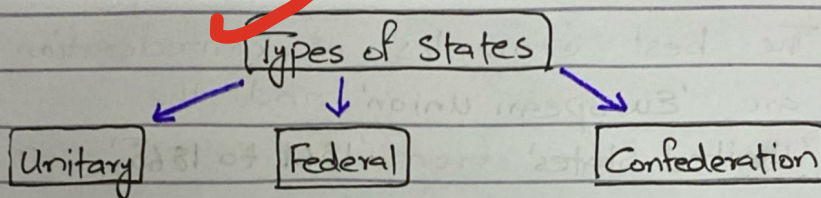 Types of States
Unitary
Federal
Confederation